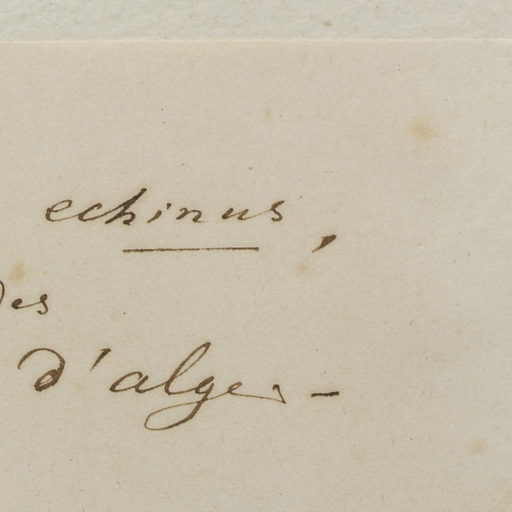 echinus,
des
d'alger -